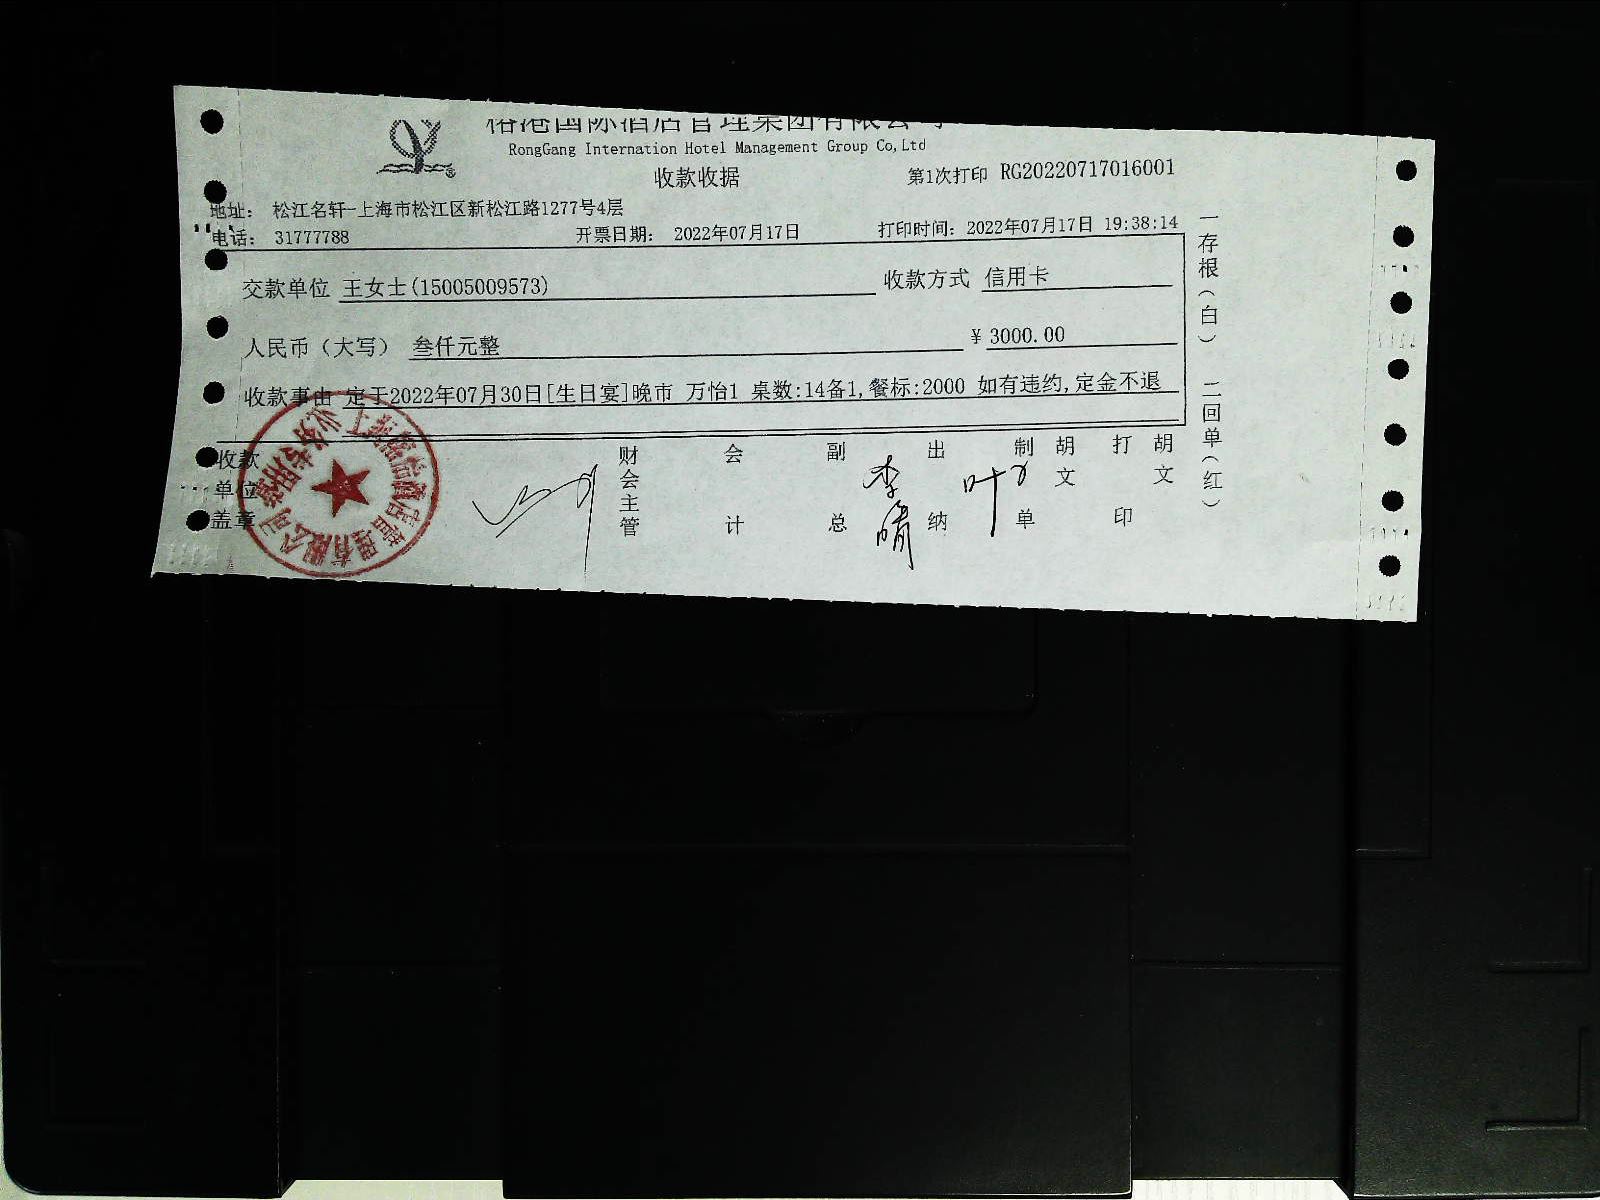 榕港国际酒店管理集团有限公司
RongGang Internation Hotel Management Group Co,Ltd
收款收据
第1次打印 RG20220717016001
地址： 松江名轩-上海市松江区新松江路1277号4层
电话： 31777788 开票日期： 2022年07月17日 打印时间：2022年07月17日 19:38:14
交款单位 王女士(15005009573) 收款方式 信用卡
人民币（大写） 叁仟元整 ¥ 3000.00
收款事由 定于2022年07月30日[生日宴]晚市 万怡1 桌数:14备1,餐标:2000 如有违约,定金不退
收款单位盖章
财会主管
会计
副总
出纳
制单
胡文
打印
胡文
一存根（白） 二回单（红）